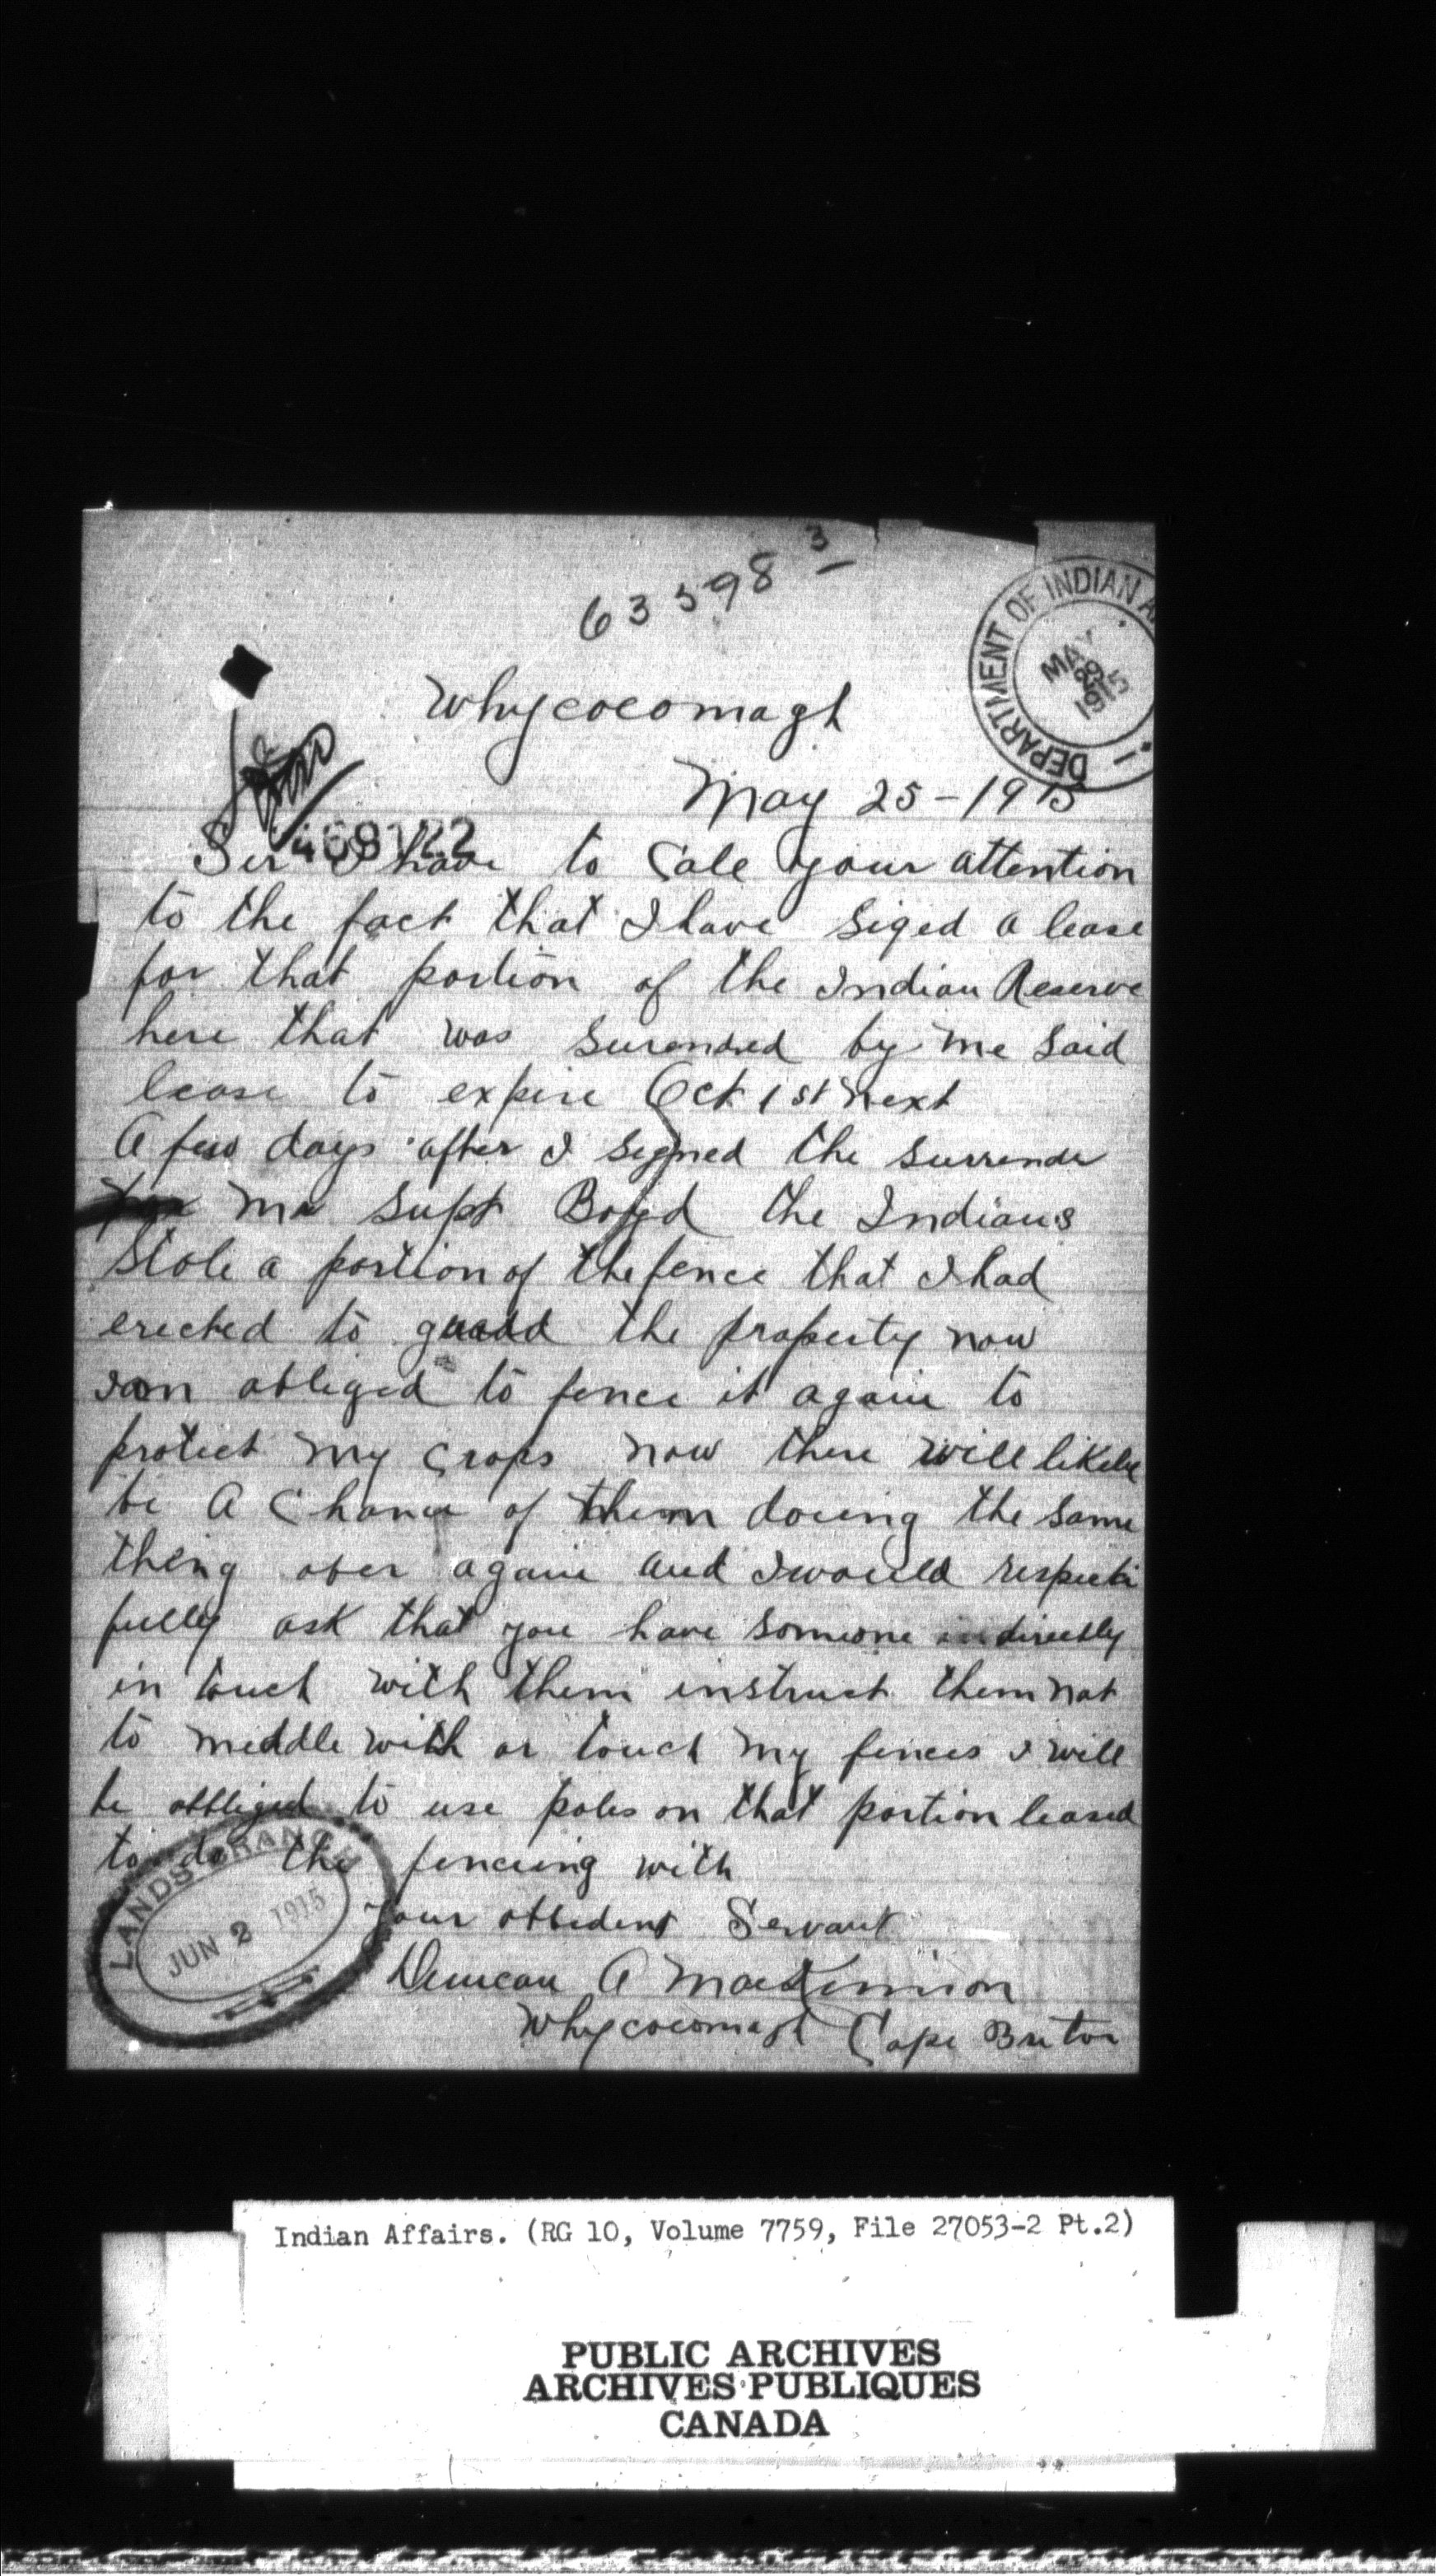 63598 3
DEPARTMENT OF INDIAN A
MAY 28 1915
Whycocomagh
May 25-1915
468122
Sir I have to Cale your attention
to the fact that I have siged a lease
for that portion of the Indian Reserve
here that was surendred by me said
lease to expire Oct 1st next
A few days after I signed the surrender
Mr Supt Boyd the Indians
Stole a portion of the fence that I had
erected to guard the property now
I am obliged to fence it again to
protect my crops now there will likely
be A Chance of them doeing the same
thing over again and I would respecti
fully ask that you have someone directly
in touch with them instruct them not
to meddle with or touch my fences I will
be obbliged to use poles on that portion leased
to do the fenceing with
Your obbedient Servant
Duncan A MacKinnon
Whycocomagh Cape Breton
LANDS BRANCH
JUN 2 1915
Indian Affairs. (RG 10, Volume 7759, File 27053-2 Pt.2)
PUBLIC ARCHIVES
ARCHIVES PUBLIQUES
CANADA